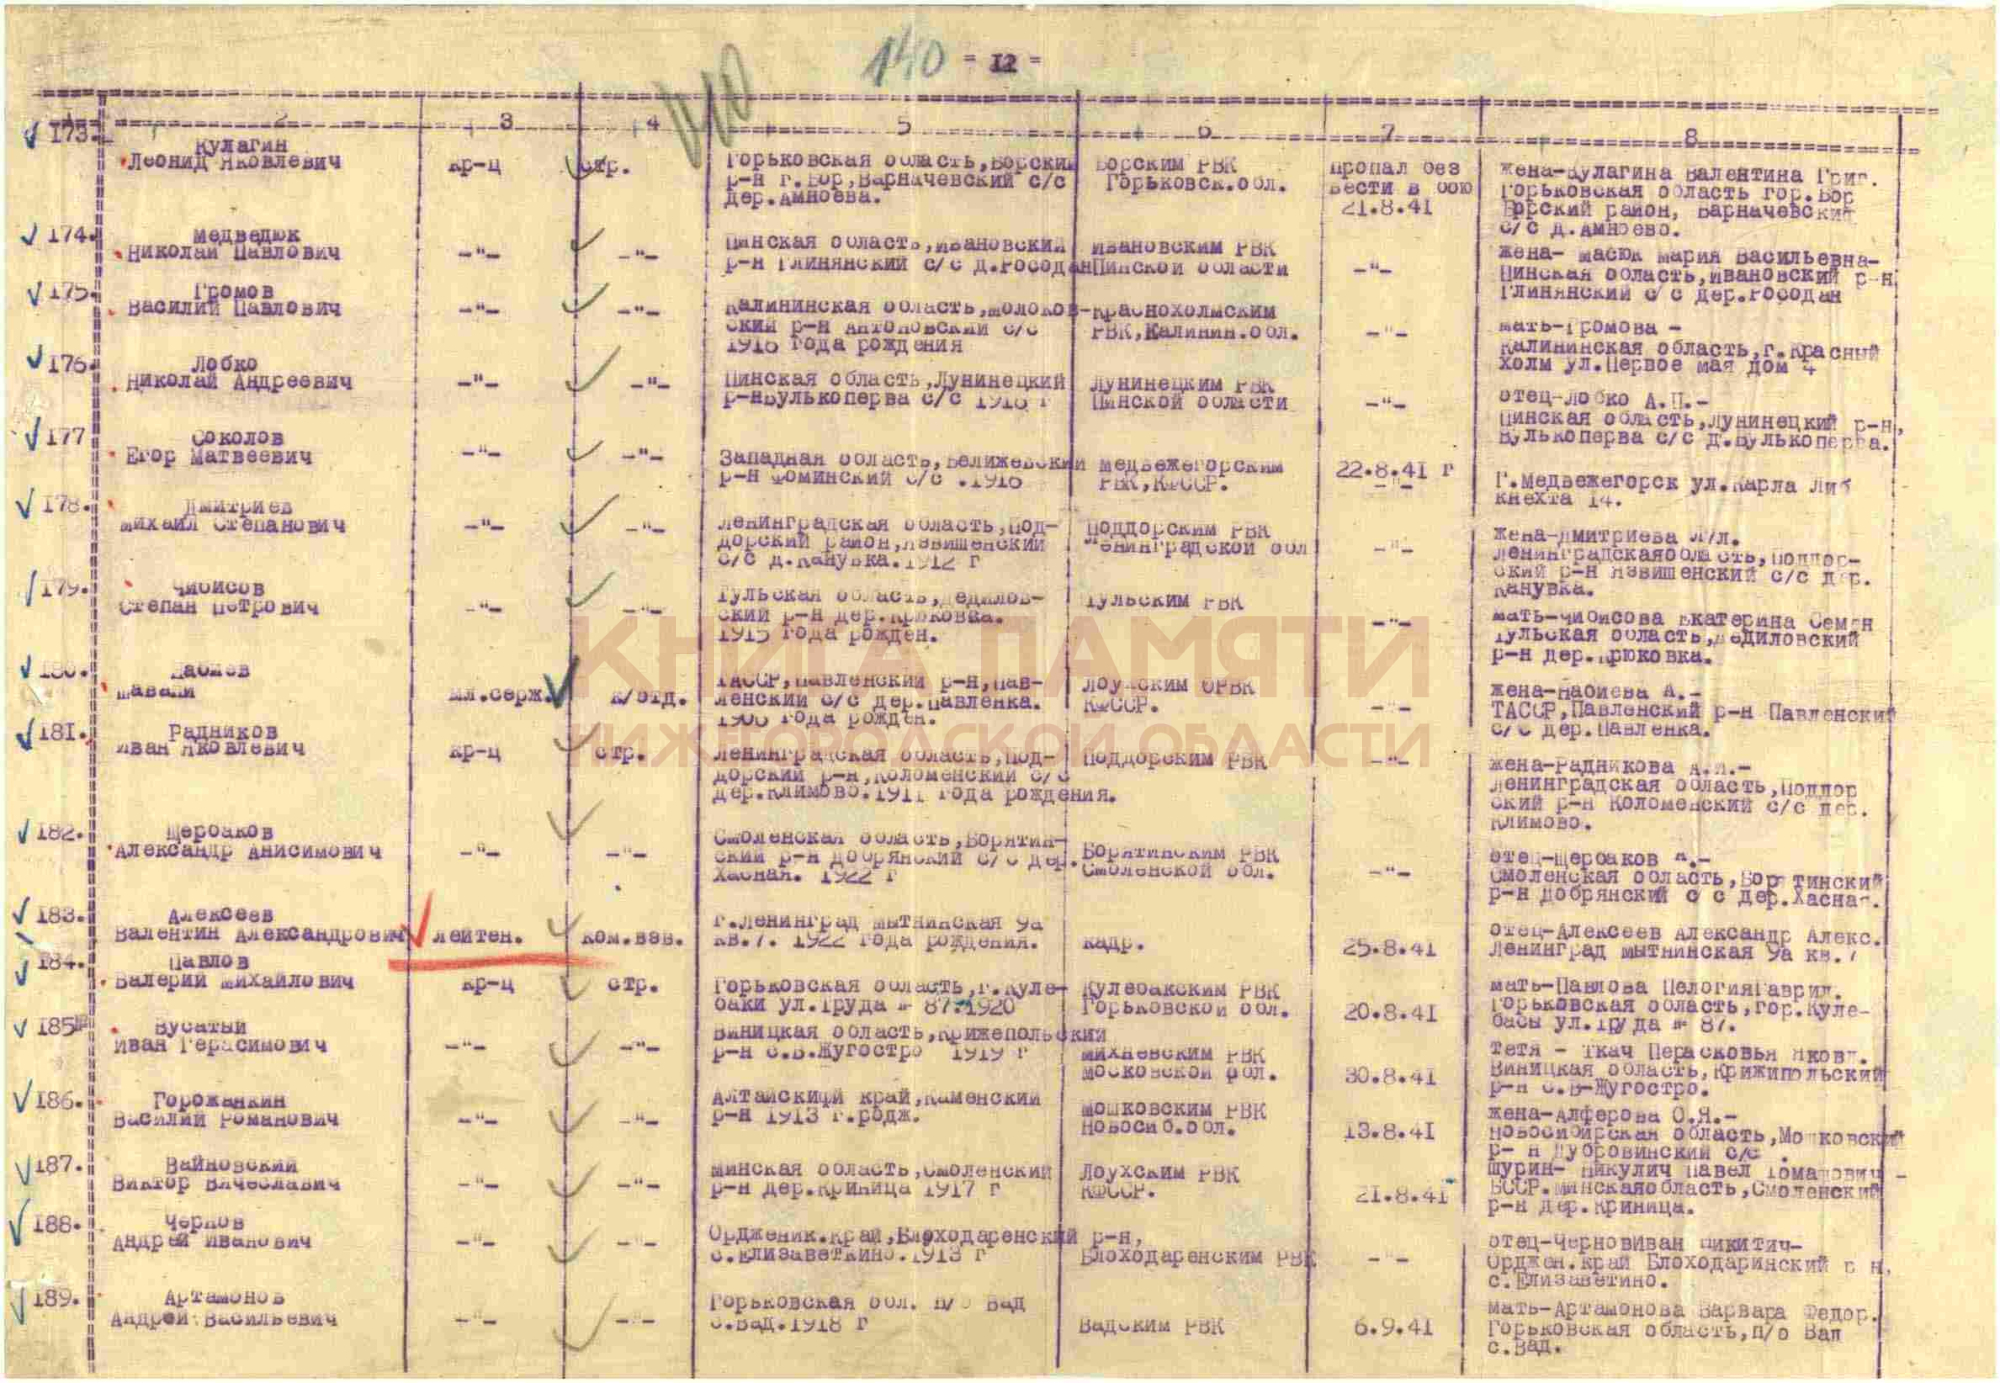 140 = 12 =
2 3 4 5 6 7 8
173. Кулагин
Леонид Яковлевич кр-ц стр. Горьковская область, Борский р-н г.Бор, Варначевский с/с дер.Амноева. Борским РВК Горьковск.обл. пропал без вести в бою 21.8.41 жена-Кулагина Валентина Григ. Горьковская область гор.Бор Борский район, Варначевский с/с д.Амноево.
174. Медведюк
Николай Павлович -"- -"- Пинская область, Ивановский р-н Глинянский с/с д.Росодан Ивановским РВК Пинской области -"- жена- Масюк Мария Васильевна- Пинская область, Ивановский р-н Глинянский с/с дер.Росодан
175. Громов
Василий Павлович -"- -"- Калининская область, Молоковский р-н Антоновский с/с 1916 года рождения Краснохолмским РВК, Калинин.обл. -"- мать-Громова - Калининская область, г.Красный Холм ул.Первое мая дом 4
176. Лобко
Николай Андреевич -"- -"- Пинская область, Лунинецкий р-н Вулькоперва с/с 1918 г Лунинецким РВК Пинской области -"- отец-Лобко А.П.- Пинская область, Лунинецкий р-н, Вулькоперва с/с д.Вулькоперва.
177 Соколов
Егор Матвеевич -"- -"- Западная область, Велижевский р-н Фоминский с/с .1916 Медвежегорским РВК, КФССР. 22.8.41 г -"- Г.Медвежегорск ул.Карла Либкнехта 14.
178. Дмитриев
Михаил Степанович -"- -"- Ленинградская область, Поддорский район, Язвищенский с/с д.Канувка. 1912 г Поддорским РВК Ленинградской обл -"- жена-Дмитриева Ленинградская область, Поддорский р-н Язвищенский с/с дер. Канувка.
179. Чибисов
Степан Петрович -"- -"- Тульская область, Дедиловский р-н дер.Крюковка. 1915 года рожден. Тульским РВК -"- мать-Чибисова Екатерина Семен Тульская область, Дедиловский р-н дер.Крюковка.
180. Набиев
Шавали мл.серж. к/отд. ТАССР, Павленский р-н, Павленский с/с дер.Павленка. 1906 года рожден. Лоухским ОРВК КФССР. -"- жена-Набиева А.- ТАССР, Павленский р-н Павленский с/с дер.Павленка.
181. Радников
Иван Яковлевич кр-ц стр. Ленинградская область, Поддорский р-н, Коломенский с/с дер.Климово. 1911 года рождения. Поддорским РВК -"- жена-Радникова А.И.- Ленинградская область, Поддорский р-н Коломенский с/с дер. Климово.
182. Щербаков
Александр Анисимович -"- -"- Смоленская область, Борятинский р-н Добрянский с/с дер. Хасная. 1922 г Борятинским РВК Смоленской обл. -"- отец-Щербаков А.- Смоленская область, Борятинский р-н Добрянский с с дер.Хасная.
183. Алексеев
Валентин Александрович лейтен. ком.взв. г.Ленинград Мытнинская 9а кв.7. 1922 года рождения. кадр. 25.8.41 отец-Алексеев Александр Алекс. Ленинград Мытнинская 9а кв.7
184. Павлов
Валерий Михайлович кр-ц стр. Горьковская область, г.Кулебаки ул.Труда № 87.1920 Кулебакским РВК Горьковской обл. 20.8.41 мать-Павлова Пелогия Гаврил. Горьковская область, гор.Кулебасы ул.Труда № 87.
185 Бусатый
Иван Герасимович -"- -"- Виницкая область, Крижепольский р-н с.Б.Жугостро 1919 г Михневским РВК Московской обл. 30.8.41 тетя - Ткач Перасковья Яковл. Виницкая область, Крижипольский р-н с.Б-Жугостро.
186. Горожанкин
Василий Романович -"- -"- Алтайский край, Каменский р-н 1913 г.рожд. Мошковским РВК Новосиб.обл. 13.8.41 жена-Алферова О.Я.- Новосибирская область, Мошковский р- н Дубровинский с/с .
187. Вайновский
Виктор Вячеславич -"- -"- Минская область, Смоленский р-н дер.Криница 1917 г Лоухским РВК КФССР. 21.8.41 шурин- Никулич Павел Томашович - БССР.Минская область, Смоленский р-н дер.Криница.
188. Чернов
Андрей Иванович -"- -"- Ордженик.край, Блоходаренский р-н, с.Елизаветкино. 1913 г Блоходаренским РВК -"- отец-Чернов Иван Никитич- Орджен.край Блоходаринский р н, с.Елизаветино.
189. Артамонов
Андрей Васильевич -"- -"- Горьковская обл. п/о Вад с.Вад. 1918 г Вадским РВК 6.9.41 мать-Артамонова Варвара Федор. Горьковская область, п/о Вад с.Вад.
КНИГА ПАМЯТИ
НИЖЕГОРОДСКОЙ ОБЛАСТИ